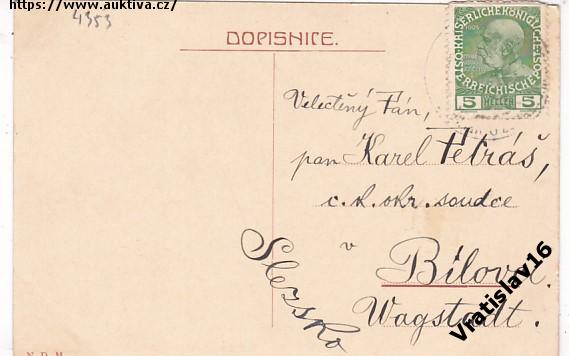 https://www.auktiva.cz/
4353
DOPISNICE.
K·K·OST·KAISERLICHEKÖNIGLICHE·POST
ÖSTERREICHISCHE
5 HELLER 5
Velectěný Pán,
pan Karel Petráš,
c.k. okr. soudce
v
Bílovci
Slezsko
Wagstadt.
Vratislav16
N. D. M.